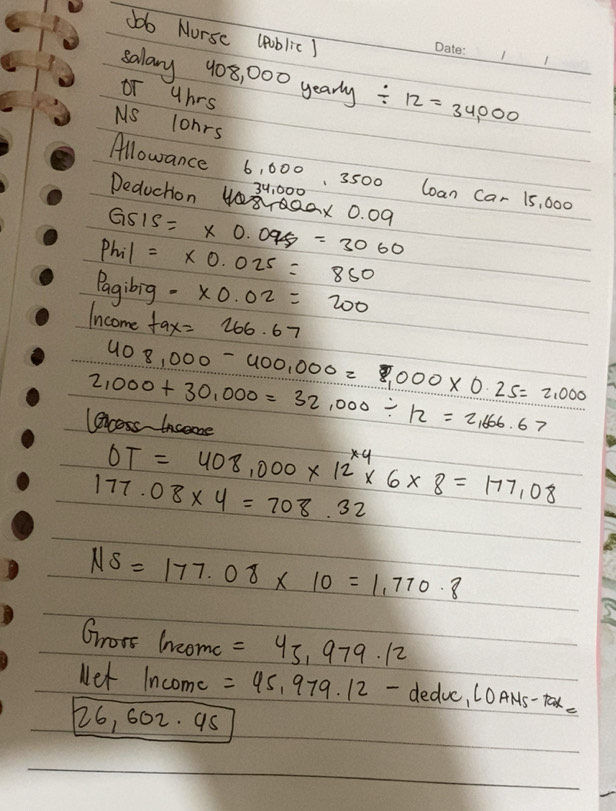 Job Nurse (Public)
Date: / /
Salary 408,000 yearly ÷ 12 = 34,000
OT 4hrs
NS 10hrs
Allowance 6,000, 3500 loan car 15,000
Deduction 34,000 x 0.09
GSIS = x 0.09 = 3060
Phil = x 0.025 = 850
Pagibig = x 0.02 = 200
Income tax = 266.67
408,000 - 400,000 = 8,000 x 0.25 = 2,000
2,000 + 30,000 = 32,000 ÷ 12 = 2,666.67
Gross Income
OT = 408,000 x 12 x4 x 6 x 8 = 177,08
177.08 x 4 = 708.32
NS = 177.08 x 10 = 1,770.8
Gross Income = 45,979.12
Net Income = 45,979.12 - deduc, LOANS - tax =
26,602.45